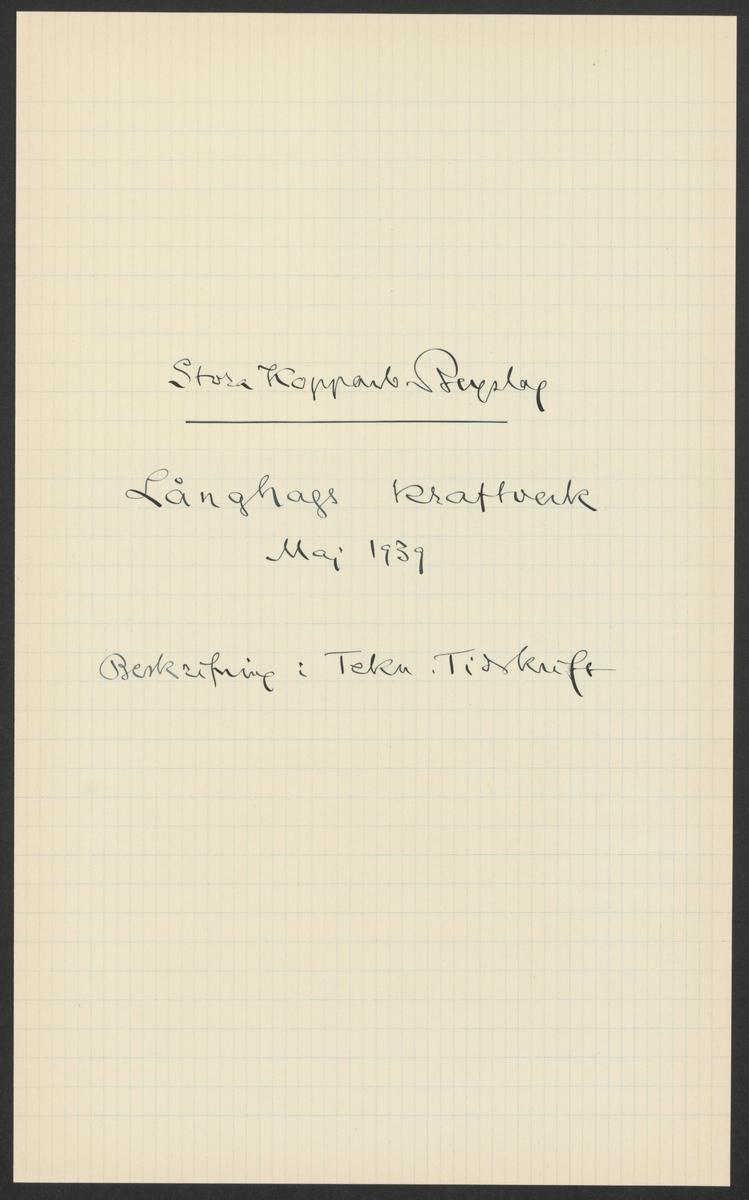 Stora Kopparb. Bergslag
Långhags kraftverk
Maj 1939
Beskrifning i Tekn. Tidskrift